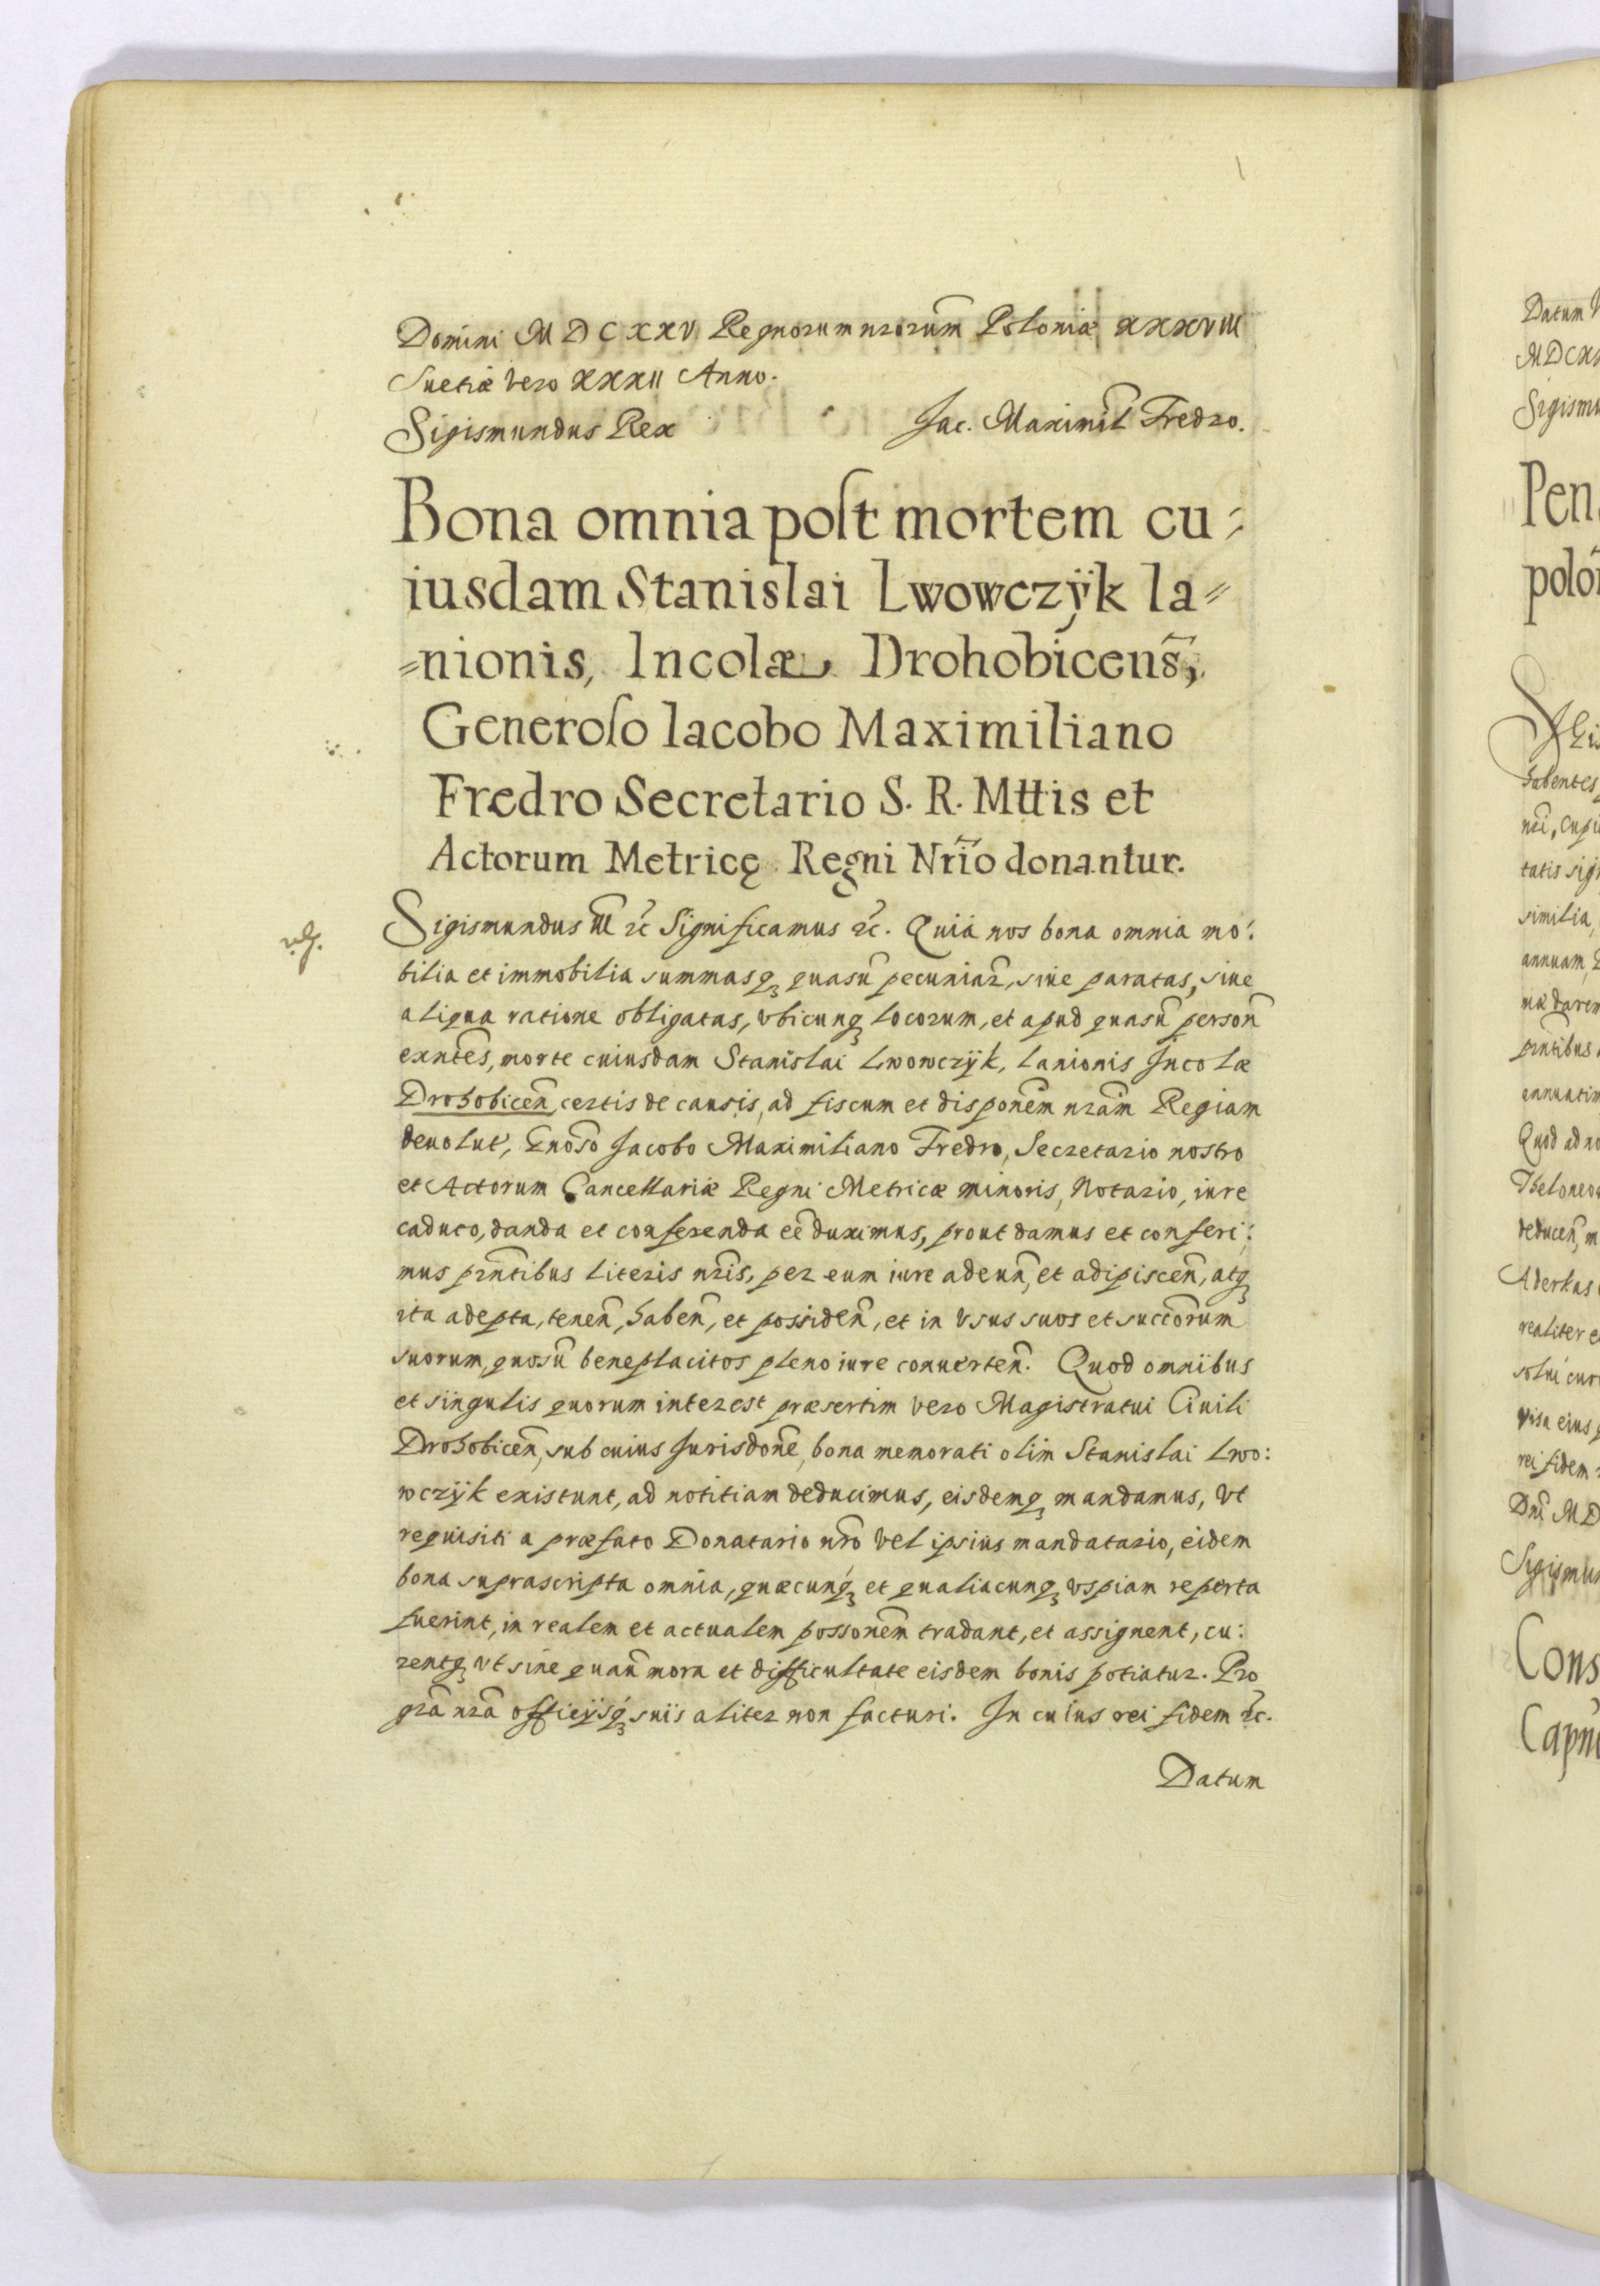 Domini MDCXXV Regnorum nrorum Poloniæ XXXVIII
Suetiæ vero XXXII Anno.
Sigismundus Rex
Jac. Maximil Fredro.
Bona omnia poſt mortem cu⸗
iusdam Stanislai Lwowczÿk la⸗
⸗nionis, Incolæ Drohobicens̃,
Generoſo Iacobo Maximiliano
Fredro Secretario S. R. Mttis et
Actorum Metricę Regni Nrio donantur.
Sigismundus III ꝛc Significamus ꝛc. Quia nos bona omnia mo:
bilia et immobilia summasqꝫ quasũ pecuniar̃, siue paratas, siue
aliqua ratione obligatas, vbicunqꝫ locorum, et apud quasũ persoñ
exñtes, morte cuiusdam Stanislai Lwowczÿk, lanionis Incolæ
Drohobiceñ, certis de causis, ad fiscum et disponẽm nrãm Regiam
deuolut, Gnoso Jacobo Maximiliano Fredro, Secretario nostro
et Actorum Cancellariæ Regni Metricæ minoris, Notario, iure
caduco, danda et conferenda eẽ duximus, prout damus et conferi:
mus prñtibus literis nris, per eum iure adeuñ, et adipisceñ, atqꝫ
ita adepta, teneñ, habeñ, et possideñ, et in vsus suos et succorum
suorum, quosũ beneplacitos pleno iure conuerteñ. Quod omnibus
et singulis quorum interest præsertim vero Magistratui Ciuili
Drohobiceñ, sub cuius Jurisdone, bona memorati olim Stanislai Lwo:
wczÿk existunt, ad notitiam deducimus, eisdemqꝫ mandamus, vt
requisiti a præfato Donatario nrõ vel ipsius mandatario, eidem
bona suprascripta omnia, quæcunqꝫ et qualiacunqꝫ vspiam reperta
fuerint, in realem et actualem possonẽm tradant, et assignent, cu:
rentqꝫ vt sine quauñ mora et difficultate eisdem bonis potiatur. Pro
grã nrã officÿsqꝫ suis aliter non facturi. In cuius rei fidem ꝛc.
Datum
Datum
Sigismu
Pen
habentes
tatis sig
similia,
annuam
Quod ad no
realiter e
visa eius
rei fidem
Sigismun
Cons